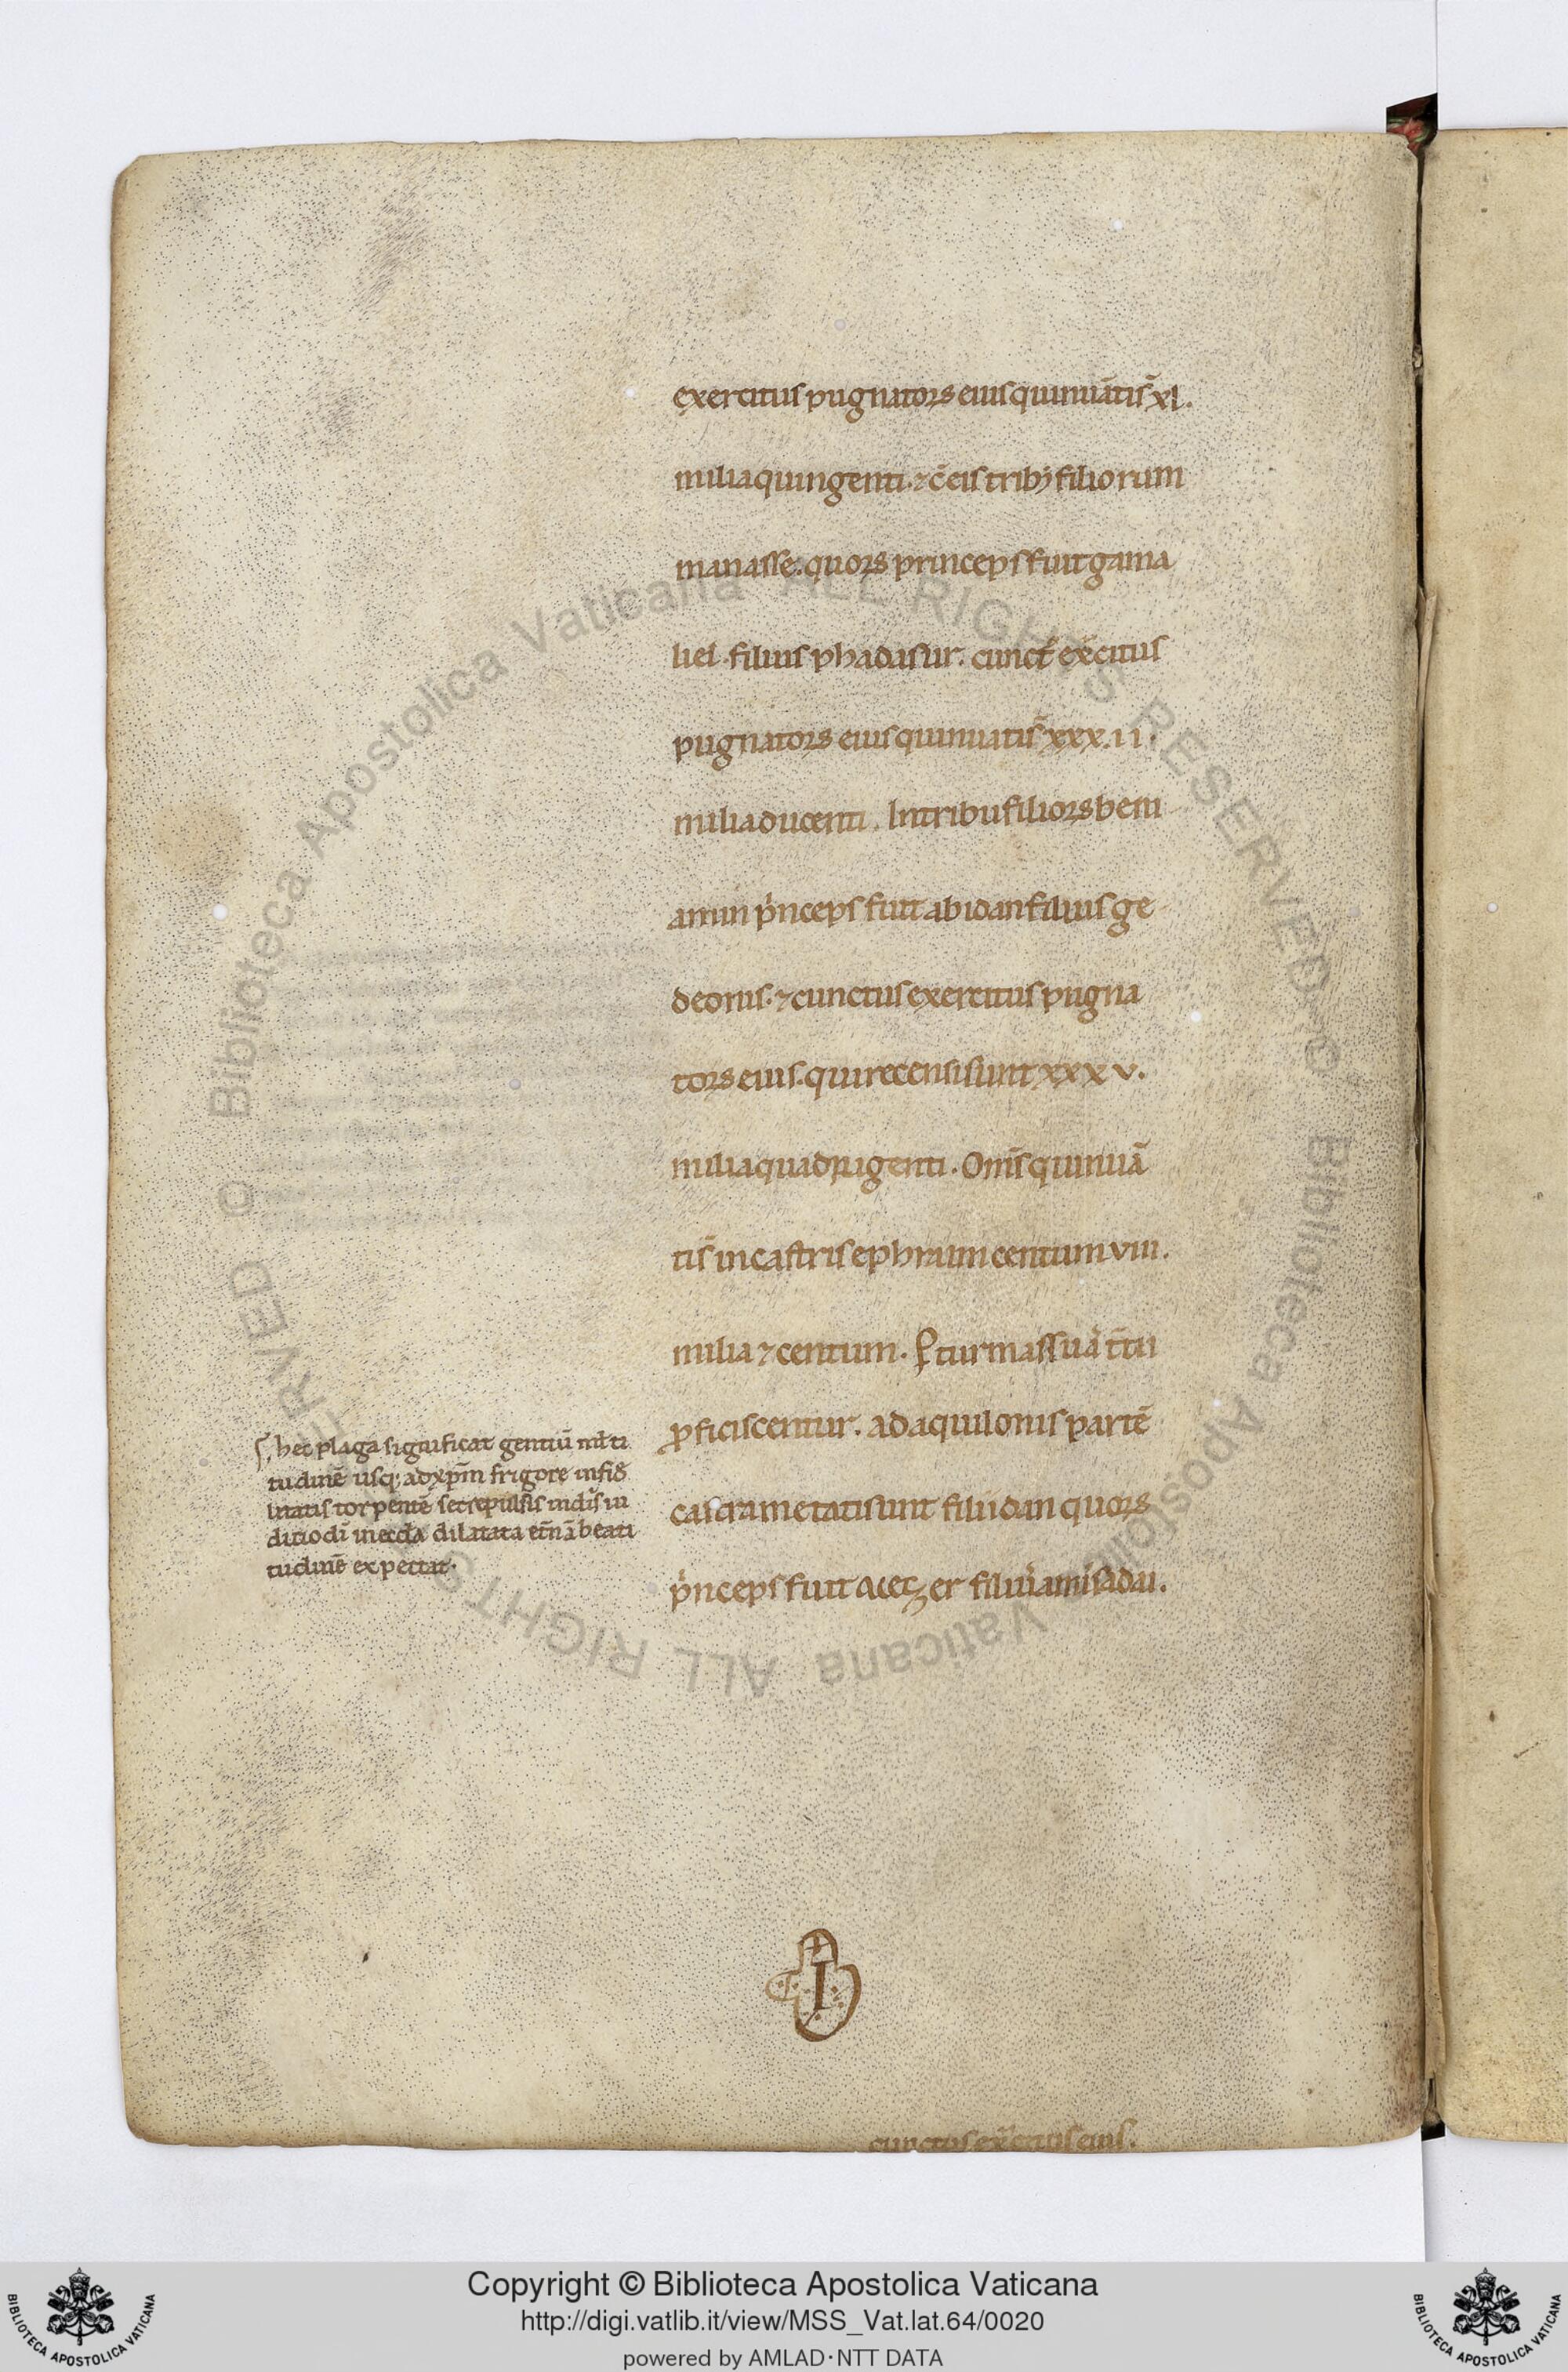 exercitus pugnatorꝝ eius qui nūatis̄ xl.
milia quingenti. ⁊ cū eis tribꝫ filiorum
manasse. quorꝝ princeps fuit gama
liel filius phadasur. cunctꝰ exc̄itus
pugnatorꝝ eius qui nūatis̄ xxx.ii.
milia ducenti. In tribu filiorꝝ beni
amin pⁱnceps fuit abidan filius ge
deonis. ⁊ cunctus exercitus pugna
torꝝ eius. qui recensi sunt xxx v.
milia quadrigenti. Om̄s qui nūa
tis̄ in castris ephraim centum viii.
milia ⁊ centum. ꝑ turmas suas t̄tii
ꝓficiscentur. ad aquilonis partē
castrametati sunt filii dan quorꝝ
pⁱnceps fuit aiezer filius amisadai.
hec plaga significat gentiū ml̄ti
tudinē usqꝫ ad xp̄m frigore infid
litatis torpentē set repulsis iudīs iu
ditio dī in eccl̄a dilatata et̄nā beati
tudinē expectat.
I
cunctus exc̄itus eius.
Copyright © Biblioteca Apostolica Vaticana
http://digi.vatlib.it/view/MSS_Vat.lat.64/0020
powered by AMLAD·NTT DATA
BIBLIOTECA APOSTOLICA VATICANA
BIBLIOTECA APOSTOLICA VATICANA
© Biblioteca Apostolica Vaticana ALL RIGHTS RESERVED © Biblioteca Apostolica Vaticana ALL RIGHTS RESERVED